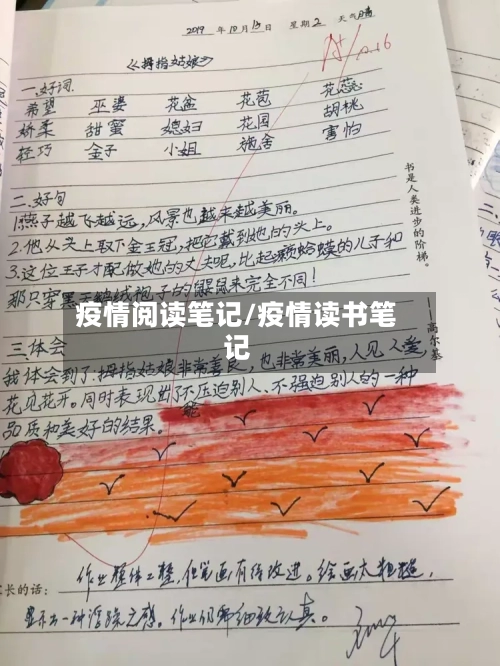 2019 年 10 月 15 日 星期 2 天气 晴
《拇指姑娘》
A+
一.好词
希望 巫婆 花盆 花苞 花蕊
娇柔 甜蜜 媳妇 花园 胡桃
轻巧 金子 小姐 施舍 害怕
二.好句
1.燕子越飞越远,风景也越来越美丽。
2.他从头上取下金王冠,把它戴到她的头上。
3.这位王子才配做她的丈夫呢,比起癞蛤蟆的儿子和
那只穿黑天鹅绒袍子的鼹鼠来完全不同!
疫情阅读笔记/疫情读书笔
记
三.体会
我体会到了:拇指姑娘非常善良,也非常美丽,人见人爱,
花见花开。同时表现出了不压迫别人、不强迫别人的一种
能
品质和美好的结果。
书是人类进步的阶梯。
——高尔基
家长的话:
作业整体工整,但笔画有待改进。绘画太粗糙,
显示出一种潦草之感。作业仍需细致认真。